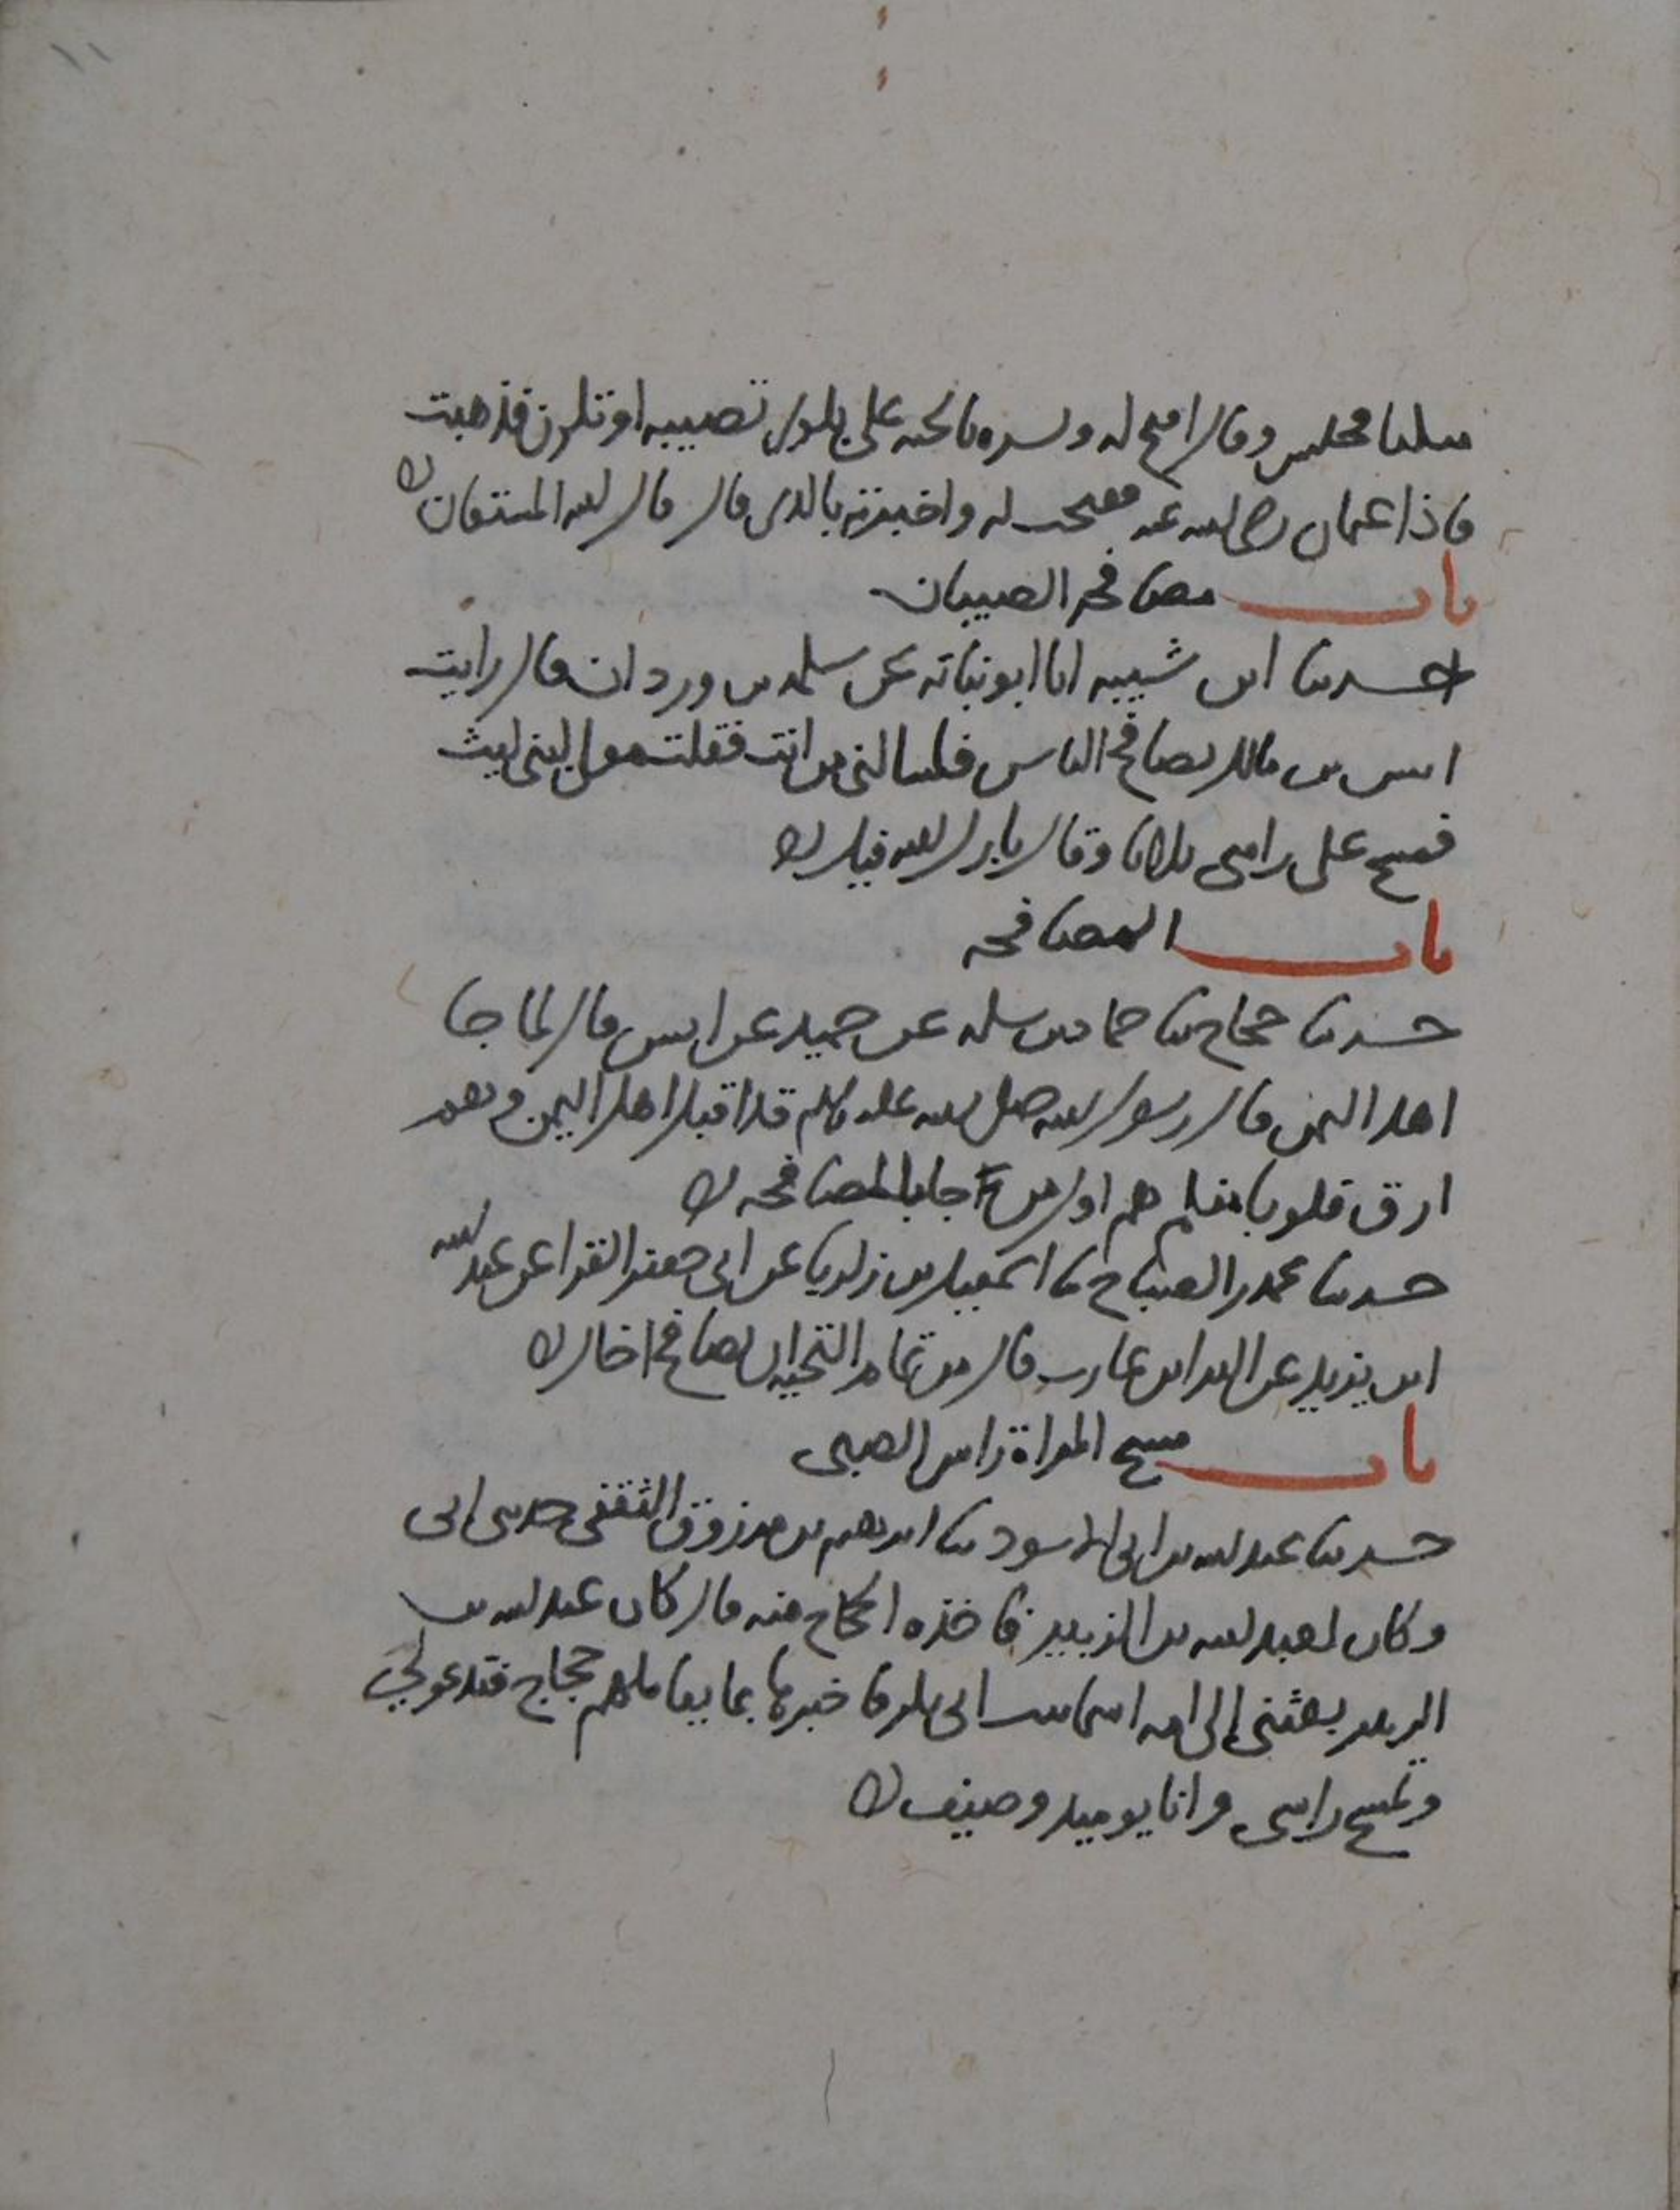 متكيا فجلس وقال افتح له وبشره بالجنة على بلوى تصيبه او تكون فذهبت
فاذا عثمان رضى الله عنه ففتحت له واخبرته بالذى قال قال الله المستعان
باب مصافحة الصبيان
حدثنا ابن شيبه انا ابو نباته عن سلمه بن وردان قال رايت
انس بن مالك يصافح الناس فسالنى من انت فقلت مولى لبنى ليث
فمسح على راسى ثلاثا وقال بارك الله فيك
باب المصافحه
حدثنا حجاج ثنا حماد بن سلمه عن حميد عن انس قال لما جا
اهل اليمن قال رسول الله صلى الله عليه وسلم قد اقبل اهل اليمن وهم
ارق قلوبا منكم هم اول من جا بالمصافحه
حدثنا محمد بن الصباح ثنا اسمعيل بن زكريا عن ابى جعفر الفرا عن عبد الله
ابن يزيد عن البرا بن عازب قال من تمام التحيه ان تصافح اخاك
باب مسح المراة راس الصبى
حدثنا عبد الله بن ابى الاسود ثنا ابرهيم بن مرزوق الثقفى حدثنى ابى
وكان لعبد الله بن الزبير فاخذه الحجاج منه قال كان عبد الله بن
الزبير بعثنى الى امه اسما بنت ابى بكر فاخبرها بما يعاملهم حجاج فتدعو لى
وتمسح راسى وانا يوميذ وصيف
١١